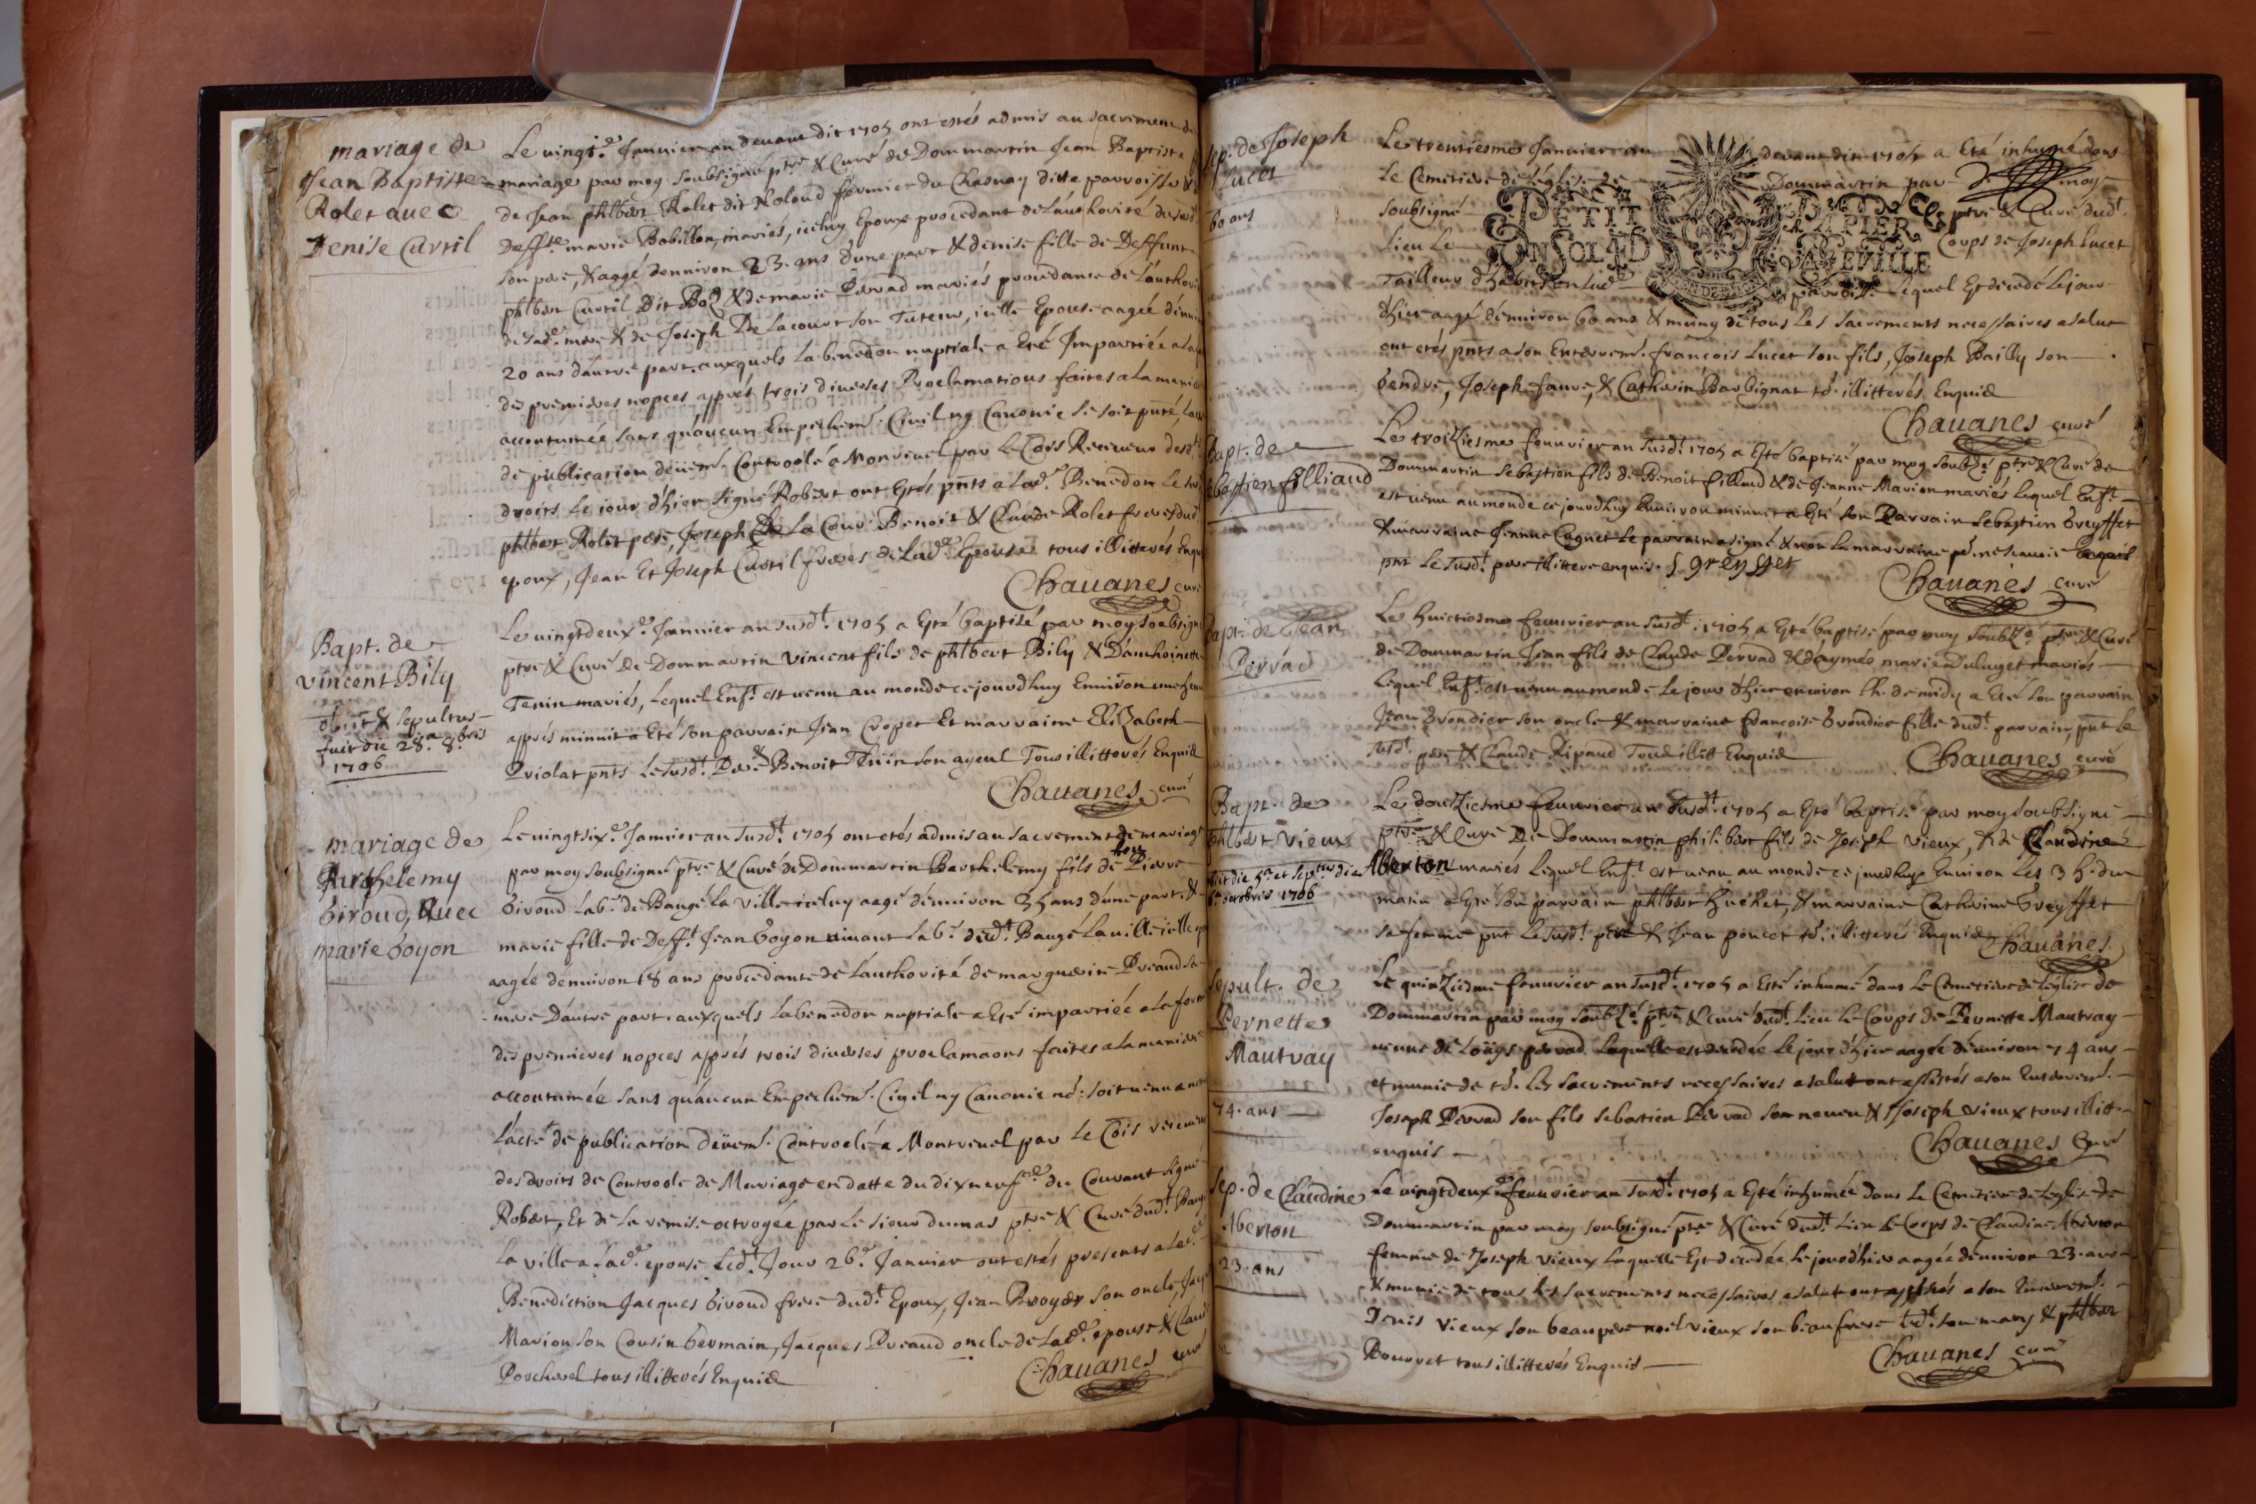 mariage de
Jean Baptiste
Rolet avec
Denise Cavril
Le vingt.e Janvier an devant dit 1705 ont estés admis au sacrement de
mariage par moy soubsigné ptre & Curé de Dommartin Jean Baptiste fils
de Jean phlbert Rolet dit Roloud fermier du Chasnay ditte parroisse &
Deffte marie Bobillon, mariés, iceluy Epoux procedant de l'authorité du susdt
son pere, & aagé d'environ 23. ans d'une part & denise fille de Deffunt
phlbert Cavril Dit Bol & de marie Pervad mariés procedante de l'authorité
de sad.e mere & de Joseph De la cour son Tuteur, icelle Epouse aagée d'environ
20 ans d'autre part, auxquels la benedon nuptiale a Eté Impartiée a la
des premieres nopces apprés trois diverses Proclamations faites a la maniere
accoutumée sans qu'aucun Empechemt. Civil ny Canonic se soit pnté, l'acte
de publication deüemt. Controolé a Montrevel par Le Cois Receveur desdts
droits Le jour d'hier signé Robert ont Estés pnts a lad.e Benedon Le sus
phlbert Rolet pere, Joseph De La Cour Benoit & Claude Rolet freres dud
epoux, Jean Et Joseph Cavril freres de Lad.e Epouse tous illitterés Enquis
Chavanes curé
Bapt. de
vincent Bily
obiit & sepultus
fuit die 28.a 8bris
1706
Le vingtdeux.e Janvier an susd.t 1705 a Esté baptisé par moy soubsigné
ptre & Curé De Dommartin vincent fils de phlbert Bily & D'anthoinette
Tenin mariés, Lequel Enft. est venu au monde ce jourdhuy Environ une heure
apprés minuit a Eté son parrain Jean Croper Et marraine Elizabeth
Priolat pnts Le susd.t Pere & Benoit Tenin son ayeul Tous illitterés Enquis
Chavanes curé
mariage de
Barthelemy
Giroud, Avec
marie Goyon
Le vingtsix.e Janvier an susd.t 1705 ont etés admis au sacrement de mariage
par moy soubsigné ptre & Curé de Dommartin Barthelemy fils de hon. Pierre
Giroud Lab.r de Baugé La ville icelui aagé d'environ 35 ans d'une part, &
marie fille de Defft Jean Goyon vivant Lab.r dud.t Baugé La ville icelle
aagée d'environ 18 ans procedante de l'authorité de marguerite Preaud sa
mere D'autre part, auxquels La benedon nuptiale a Eté impartiée a la forme
des premieres nopces apprés trois diverses proclamaons faites a la maniere
accoutumée sans qu'aucun Empechemt. Civil ny Canonic nd. soit venu a not
l'acte de publication deüemt. Controolé a Montrevel par Le Cois receveur
des droits de Controole de Mariage en datte du dixneuf.e du Courant signé
Robert, Et de la remise octroyée par le sieur dumas ptre & Curé dud.t Baugé
La ville a lad.e epouse Led.t Jour 26.e Janvier ont estés presents a lad.e
Benediction Jacques Giroud frere dud.t Epoux, Jean Broyer son oncle, Jacques
Marion son Cousin Germain, Jacques Preaud oncle de lad.e epouse & Claude
Porcherel tous illitterés Enquis
Chavanes curé
Sep. de Joseph
Lucet
60 ans
Le trentiesme Janvier an devant dit 1705 a Eté inhumé dans
Le Cemetiere de l'église de Dommartin par moy
soubsigné ptre & Curé dud.t
Lieu Le Corps de Joseph Lucet
Tailleur d'habits en lad.e parroisse Lequel Est decedé Le jour
PETIT PAPIER
UN SOL 4 D
VA EVILLE
d'hier aagé d'environ 60 ans & muny de tous Les sacrements necessaires a salut
ont etés pnts a son Enterremt. francois Lucet son fils, Joseph Bailly son
Gendre, Joseph favre, & Catherin Barbignat td. illitterés Enquis
Chavanes curé
Bapt. de
Sebastien filliaud
Le troiziesme fevvrier an susd.t 1705 a Esté baptisé par moy soubs.é ptre & Curé de
Dommartin Sebastien fils de Benoit filliaud & de Jeanne Marion mariés Lequel Enft.
est venu au monde ce jourdhuy Environ minuit a Eté son Parrain Sebastien Greyffet
& marraine Jeanne Cognet Le parrain a signé & non la marraine
pnt Le susd.t pere illittere enquis. S greyffet
Chavanes curé
Bapt. de Jean
Pervad
Le huictiesme fevvrier an susd.t 1705 a Esté baptisé par moy soub.é ptre & Curé
de Dommartin Jean fils de Claude Pervad & d'aymée marie Duluget mariés
Lequel Enft. est venu au monde Le jour d'hier environ l'h. de midy a Eté son parrain
Jean Grondier son oncle & marraine francoise Grondier fille dud.t parrain, pnt Le
susd.t pere & Claude Ripaud Tous illitt Enquis
Chavanes curé
Bapt. de
phlbert Vieux
obiit die 5.a et sep.tus die
6.a octobris 1706
Le douziesme fevvrier an susd.t 1705 a Eté baptisé par moy soubsigné
ptre & Curé De Dommartin philibert fils de Joseph vieux, & de Claudine
Aberton mariés Lequel Enft. est venu au monde ce jourdhuy Environ Les 3 h. du
matin a Eté son parrain phlbert Guchet, & marraine Catherine Greyffet
sa femme pnt Le susd.t pere & Jean poncet td. illitterés Enquis
Chavanes
Sepult. de
Pernette
Mautray
74. ans
Le quinziesme fevvrier an susd.t 1705 a Esté inhumé dans Le Cemetiere de l'église de
Dommartin par moy soub.é ptre & curé dud.t Lieu Le Corps de Pernette Mautray
veuve de Loüys pervad Laquelle est decedée Le jour d'hier aagée d'environ 74 ans
et munie de td. Les sacrements necessaires a salut ont assistés a son Enterremt.
Joseph Pervad son fils sebastien Pervad son neveu & Joseph vieux tous illitt.
enquis
Chavanes Curé
Sep. de Claudine
Aberton
23. ans
Le vingtdeux.e fevvrier an susd.t 1705 a Esté inhumée dans Le Cemetiere de l'église de
Dommartin par moy soubsigné ptre & Curé dud.t Lieu Le Corps de Claudine Aberton
femme de Joseph vieux Laquelle Est decedée Le jourd'hier aagée d'environ 23. ans
& munie de tous les sacrements necessaires a salut ont assistés a son Enterremt.
Denis vieux son beaupere noel vieux son beaufrere Led.t son mary & phlbert
Bourret tous illitterés Enquis
Chavanes curé